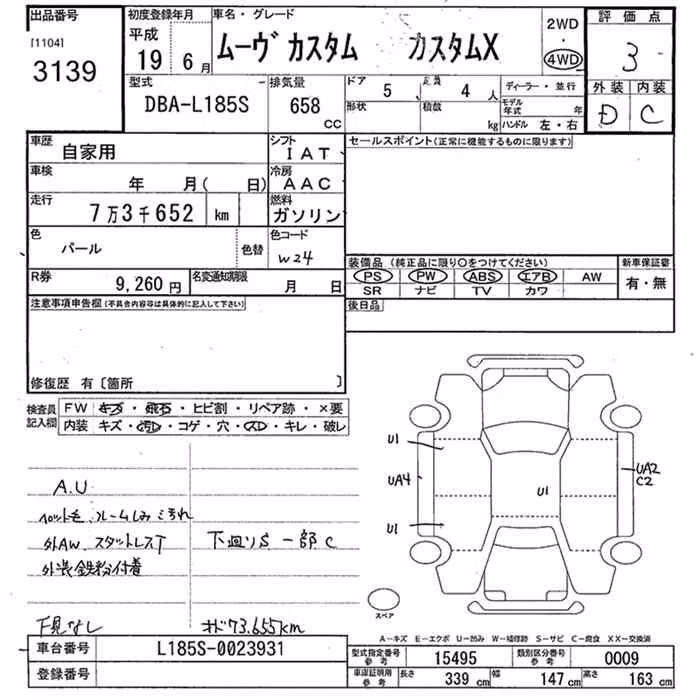 出品番号
[1104]
3139
初度登録年月
平成
19 6月
車名・グレード
ムーヴ カスタム カスタムX
2WD
・
4WD
評価点
3
外装 内装
D C
型式
DBA-L185S
排気量
658
CC
ドア
5
定員
4 人
形状
積載
kg
ディーラー・並行
モデル
年式 年
ハンドル 左・右
車歴
自家用
シフト
IAT
車検
年 月( 日)
冷房
AAC
走行
7万3千652 km
燃料
ガソリン
色
パール
色替
色コード
W24
R券
9,260円
名変通知期限
月 日
セールスポイント(正常に機能するものに限ります)
装備品 (純正品に限り○をつけてください)
PS PW ABS エアB AW
SR ナビ TV カワ
新車保証書
有・無
後日品
注意事項申告欄(不具合内容等は具体的に記入して下さい)
修復歴 有〔箇所 〕
検査員
記入欄
FW キズ・飛石・ヒビ割・リペア跡・×要
内装 キズ・汚レ・コゲ・穴・スレ・キレ・破レ
A.U
外AW、スタットレスT
外装鉄粉付着
下廻りS 一部C
下見なし
オド73.655km
U1
UA4
U1
U1
UA2
C2
スペア
A-キズ E-エクボ U-凹み W-補修跡 S-サビ C-腐食 XX-交換済
車台番号
L185S-0023931
登録番号
型式指定番号
参考
15495
類別区分番号
参考
0009
車庫証明用
参考
長さ 339cm 幅 147cm 高さ 163cm